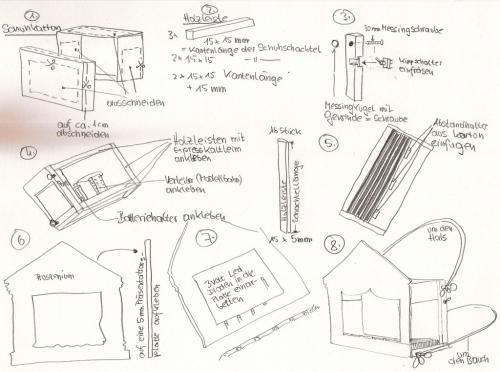 1.
Schuhkarton
ausschneiden
auf ca. 1cm
abschneiden
2.
Holzleiste
3x
15 x 15 mm
= Kantenlänge der Schuhschachtel
2x 15 x 15 — " —
2x 15 x 15 Kantenlänge
+ 15 mm
3.
30mm Messingschraube
Kippschalter
einfräsen
Messingkugel mit
Gewinde = Schraube
4.
Holzleisten mit
Expresskaltleim
ankleben
Verteiler (Modellbahn)
ankleben
Batteriehalter ankleben
4b Stück
Holzleiste
Schachtellänge
15 x 5mm
5.
Abstandhalter
aus Karton
einfügen
6
Proszenium
auf eine 5mm
Platte aufkleben
7.
2 Volt Led
Dioden in die
Platte einar-
beiten
8.
um den
Hals
um
den Bauch